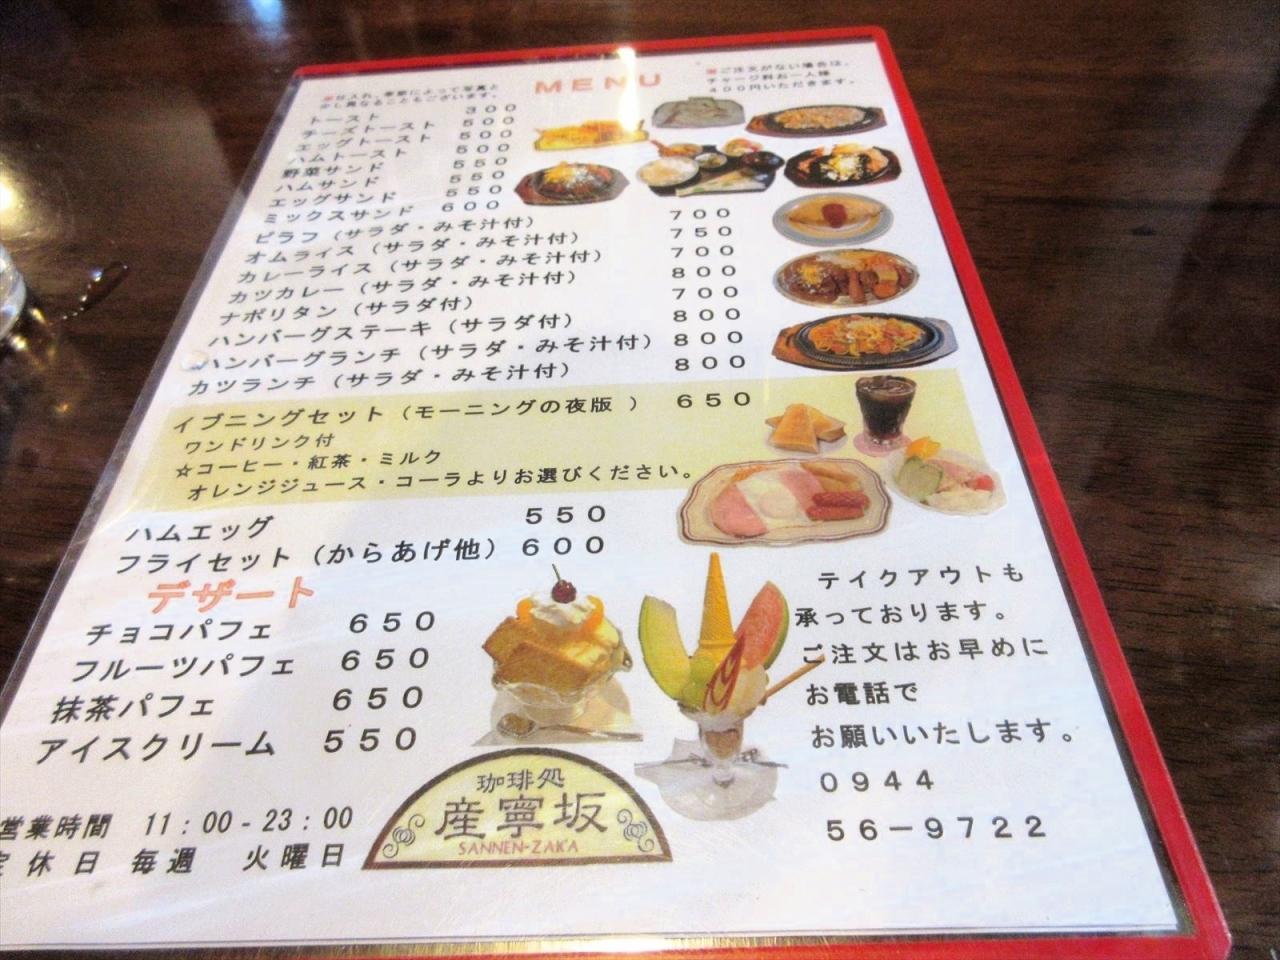 MENU
※仕入れ、季節によって写真と
少し異なることもございます。
※ご注文がない場合は、
チャージ料お一人様
400円いただきます。
トースト 300
チーズトースト 500
エッグトースト 500
ハムトースト 500
野菜サンド 550
ハムサンド 550
エッグサンド 550
ミックスサンド 600
ピラフ（サラダ・みそ汁付） 700
オムライス（サラダ・みそ汁付） 750
カレーライス（サラダ・みそ汁付） 700
カツカレー（サラダ・みそ汁付） 800
ナポリタン（サラダ付） 700
ハンバーグステーキ（サラダ付） 800
ハンバーグランチ（サラダ・みそ汁付） 800
カツランチ（サラダ・みそ汁付） 800
イブニングセット（モーニングの夜版 ） 650
ワンドリンク付
☆コーヒー・紅茶・ミルク
オレンジジュース・コーラよりお選びください。
ハムエッグ 550
フライセット（からあげ他） 600
デザート
チョコパフェ 650
フルーツパフェ 650
抹茶パフェ 650
アイスクリーム 550
テイクアウトも
承っております。
ご注文はお早めに
お電話で
お願いいたします。
0944
56－9722
営業時間 11：00-23：00
定休日 毎週 火曜日
珈琲処
産寧坂
SANNEN-ZAKA